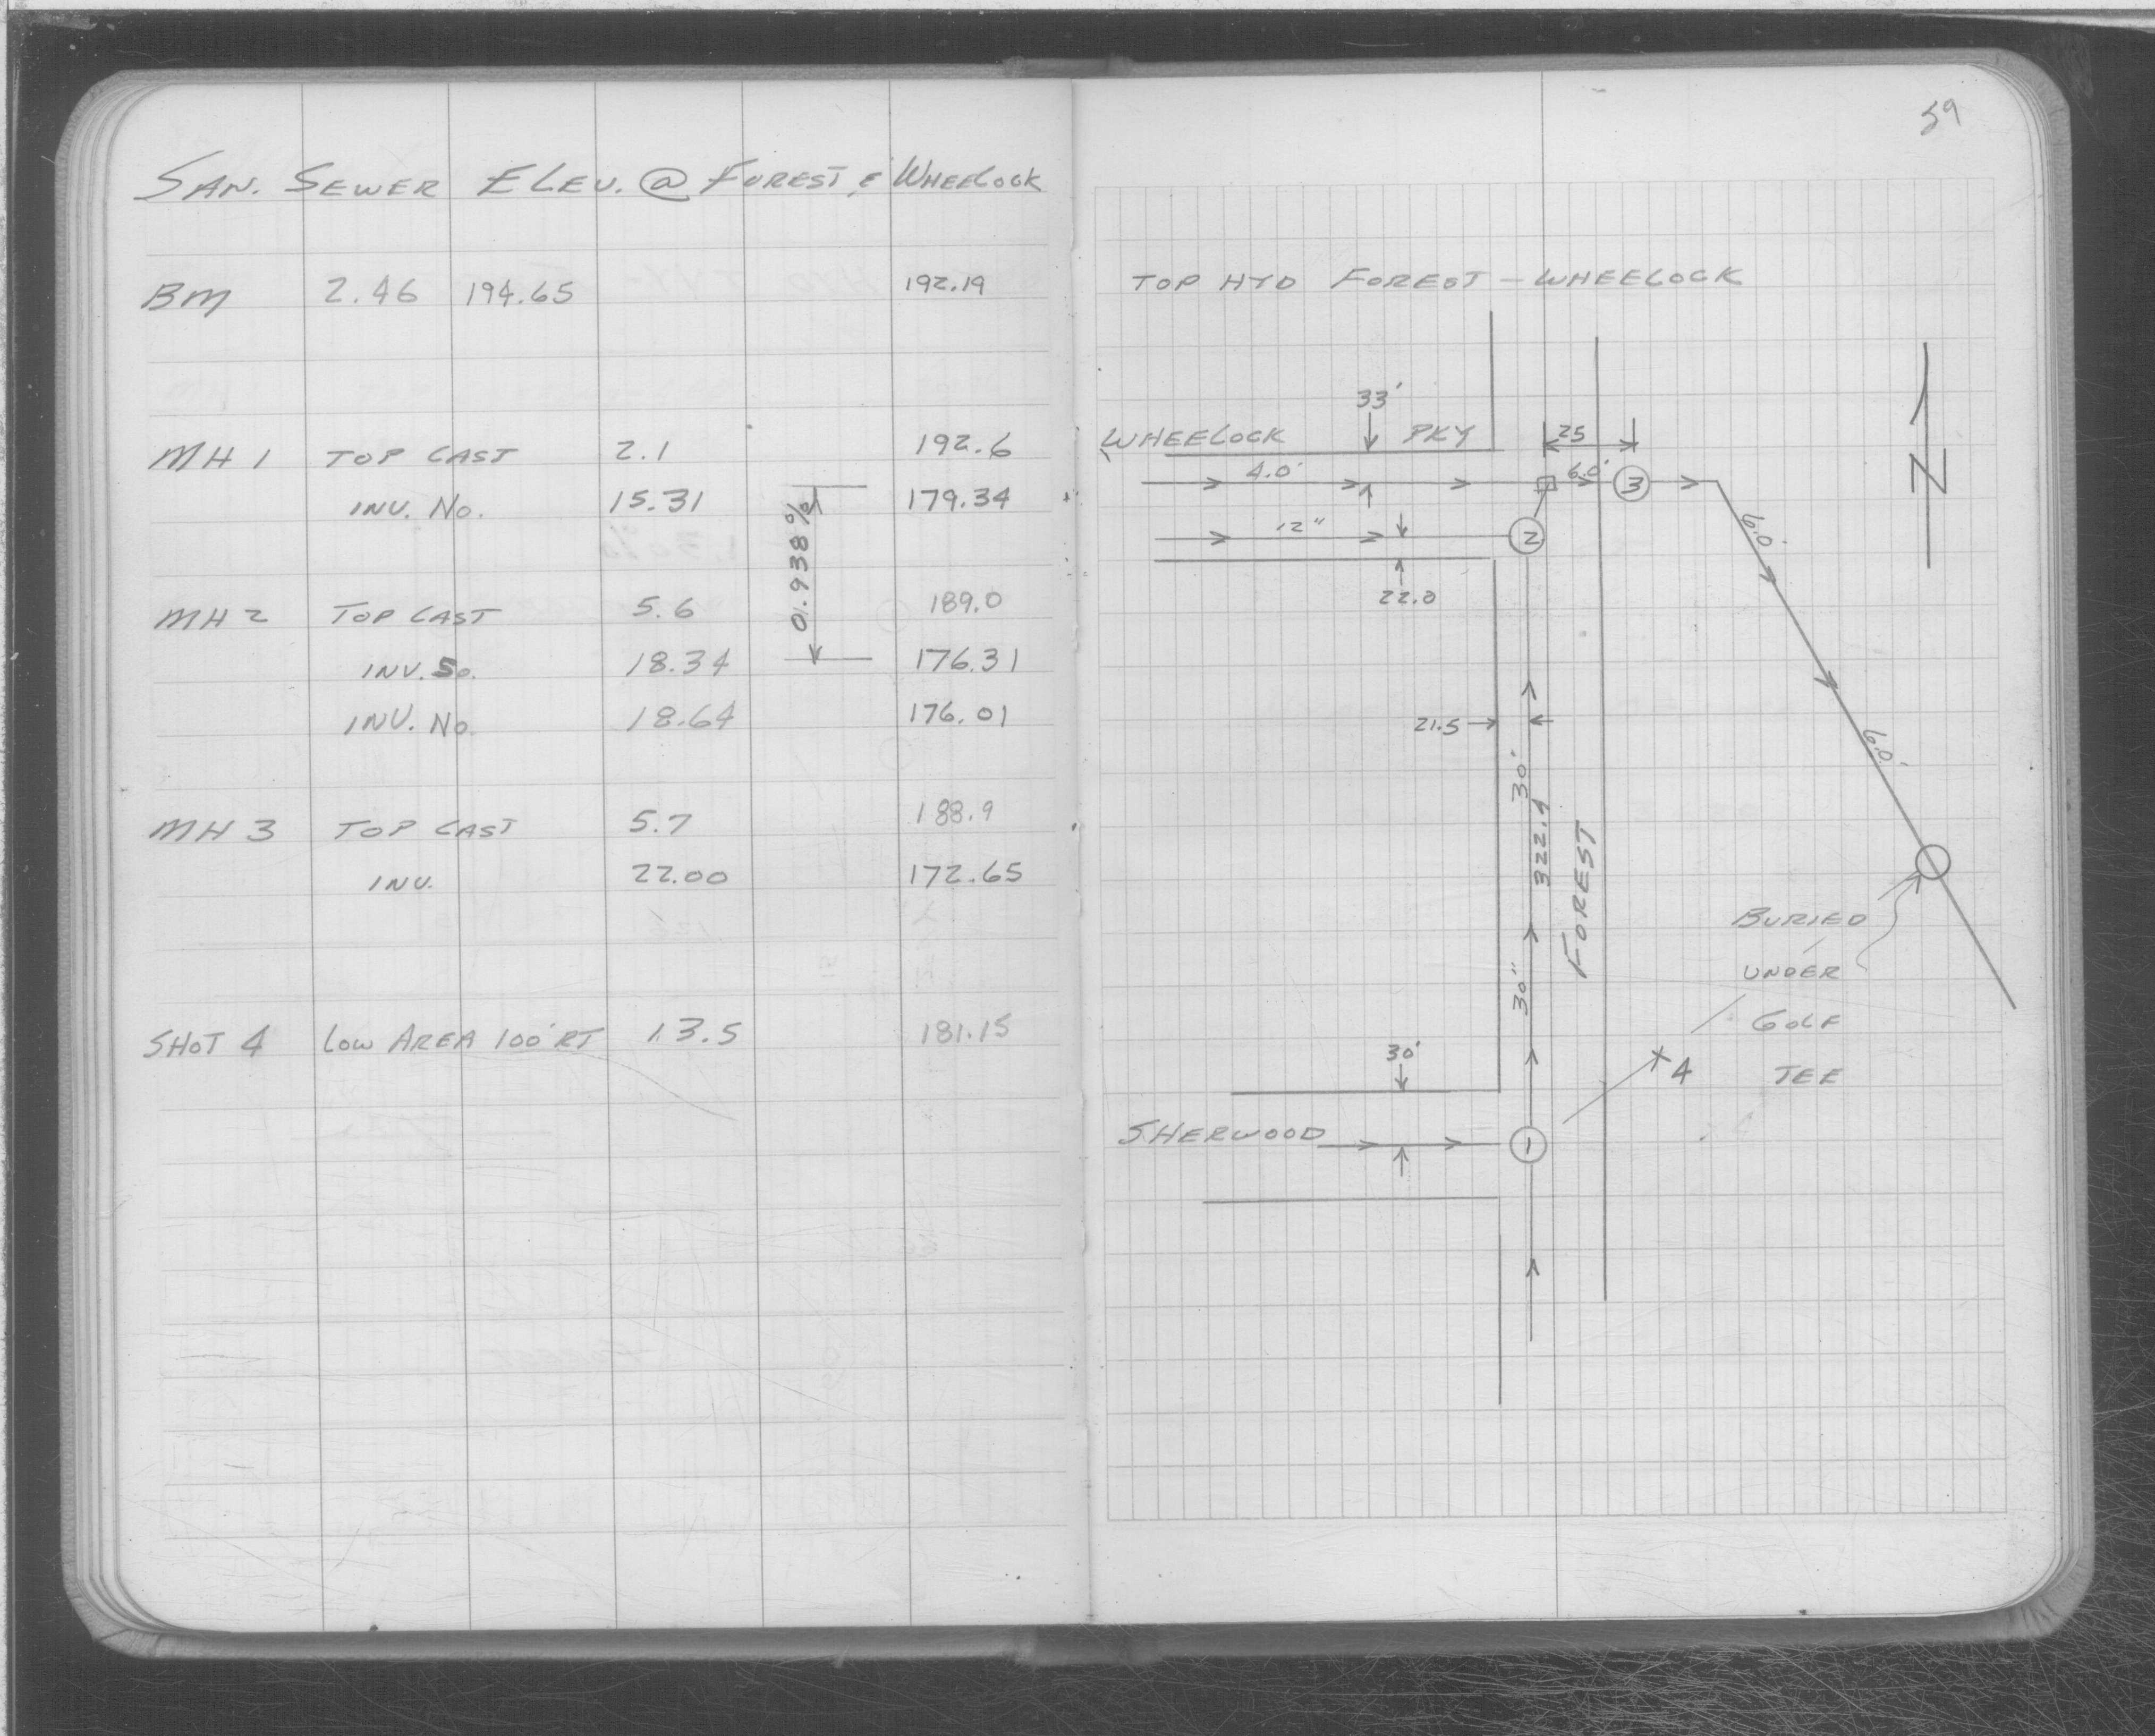 SAN. SEWER ELEV. @ FOREST & WHEELOCK
BM 2.46 194.65 192.19
MH 1 TOP CAST 2.1 192.6
INV. No. 15.31 179.34
01.938%
MH 2 TOP CAST 5.6 189.0
INV. So. 18.34 176.31
INV. No. 18.64 176.01
MH 3 TOP CAST 5.7 188.9
INV. 22.00 172.65
SHOT 4 LOW AREA 100' RT 13.5 181.15
59
TOP HYD FOREST - WHEELOCK
33'
WHEELOCK PKY 25
4.0' 6.0' 3
12" 2
22.0
6.0'
N
21.5
30'
322.4
6.0'
FOREST
30"
BURIED
UNDER
GOLF
TEE
30'
4
SHERWOOD 1